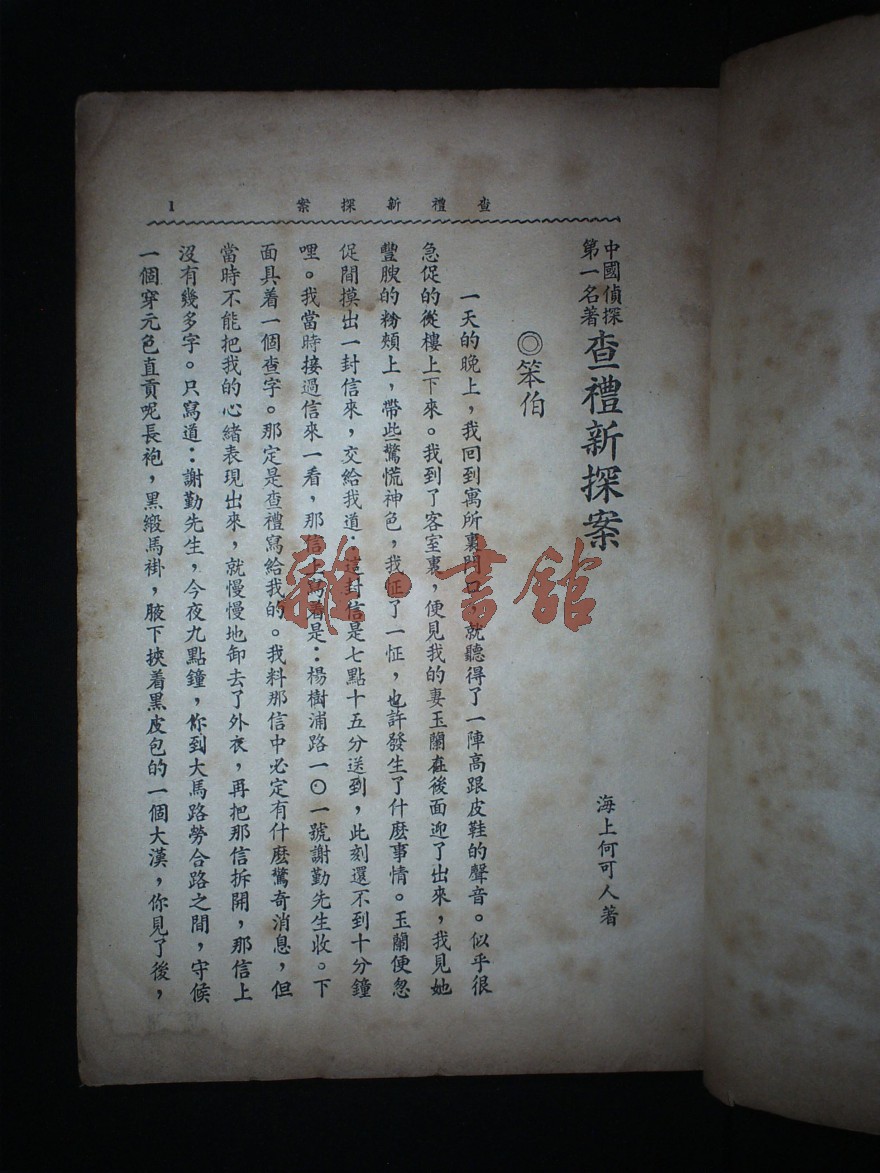 查禮新探案
1
中國偵探
第一名著
查禮新探案
海上何可人著
◎笨伯
一天的晚上，我回到寓所裏門口，就聽得了一陣高跟皮鞋的聲音。似乎很
急促的從樓上下來。我到了客室裏，便見我的妻玉蘭在後面迎了出來，我見她
豐腴的粉頰上，帶些驚慌神色，我怔了一怔，也許發生了什麽事情。玉蘭便忽
促間摸出一封信來，交給我道：這封信是七點十五分送到，此刻還不到十分鐘
哩。我當時接過信來一看，那信上寫着是：楊樹浦路一〇一號謝勤先生收。下
面具着一個查字。那定是查禮寫給我的。我料那信中必定有什麽驚奇消息，但
當時不能把我的心緒表現出來，就慢慢地卸去了外衣，再把那信拆開，那信上
沒有幾多字。只寫道：謝勤先生，今夜九點鐘，你到大馬路勞合路之間，守候
一個穿元色直貢呢長袍，黑緞馬褂，腋下挾着黑皮包的一個大漢，你見了後，
雜·書館